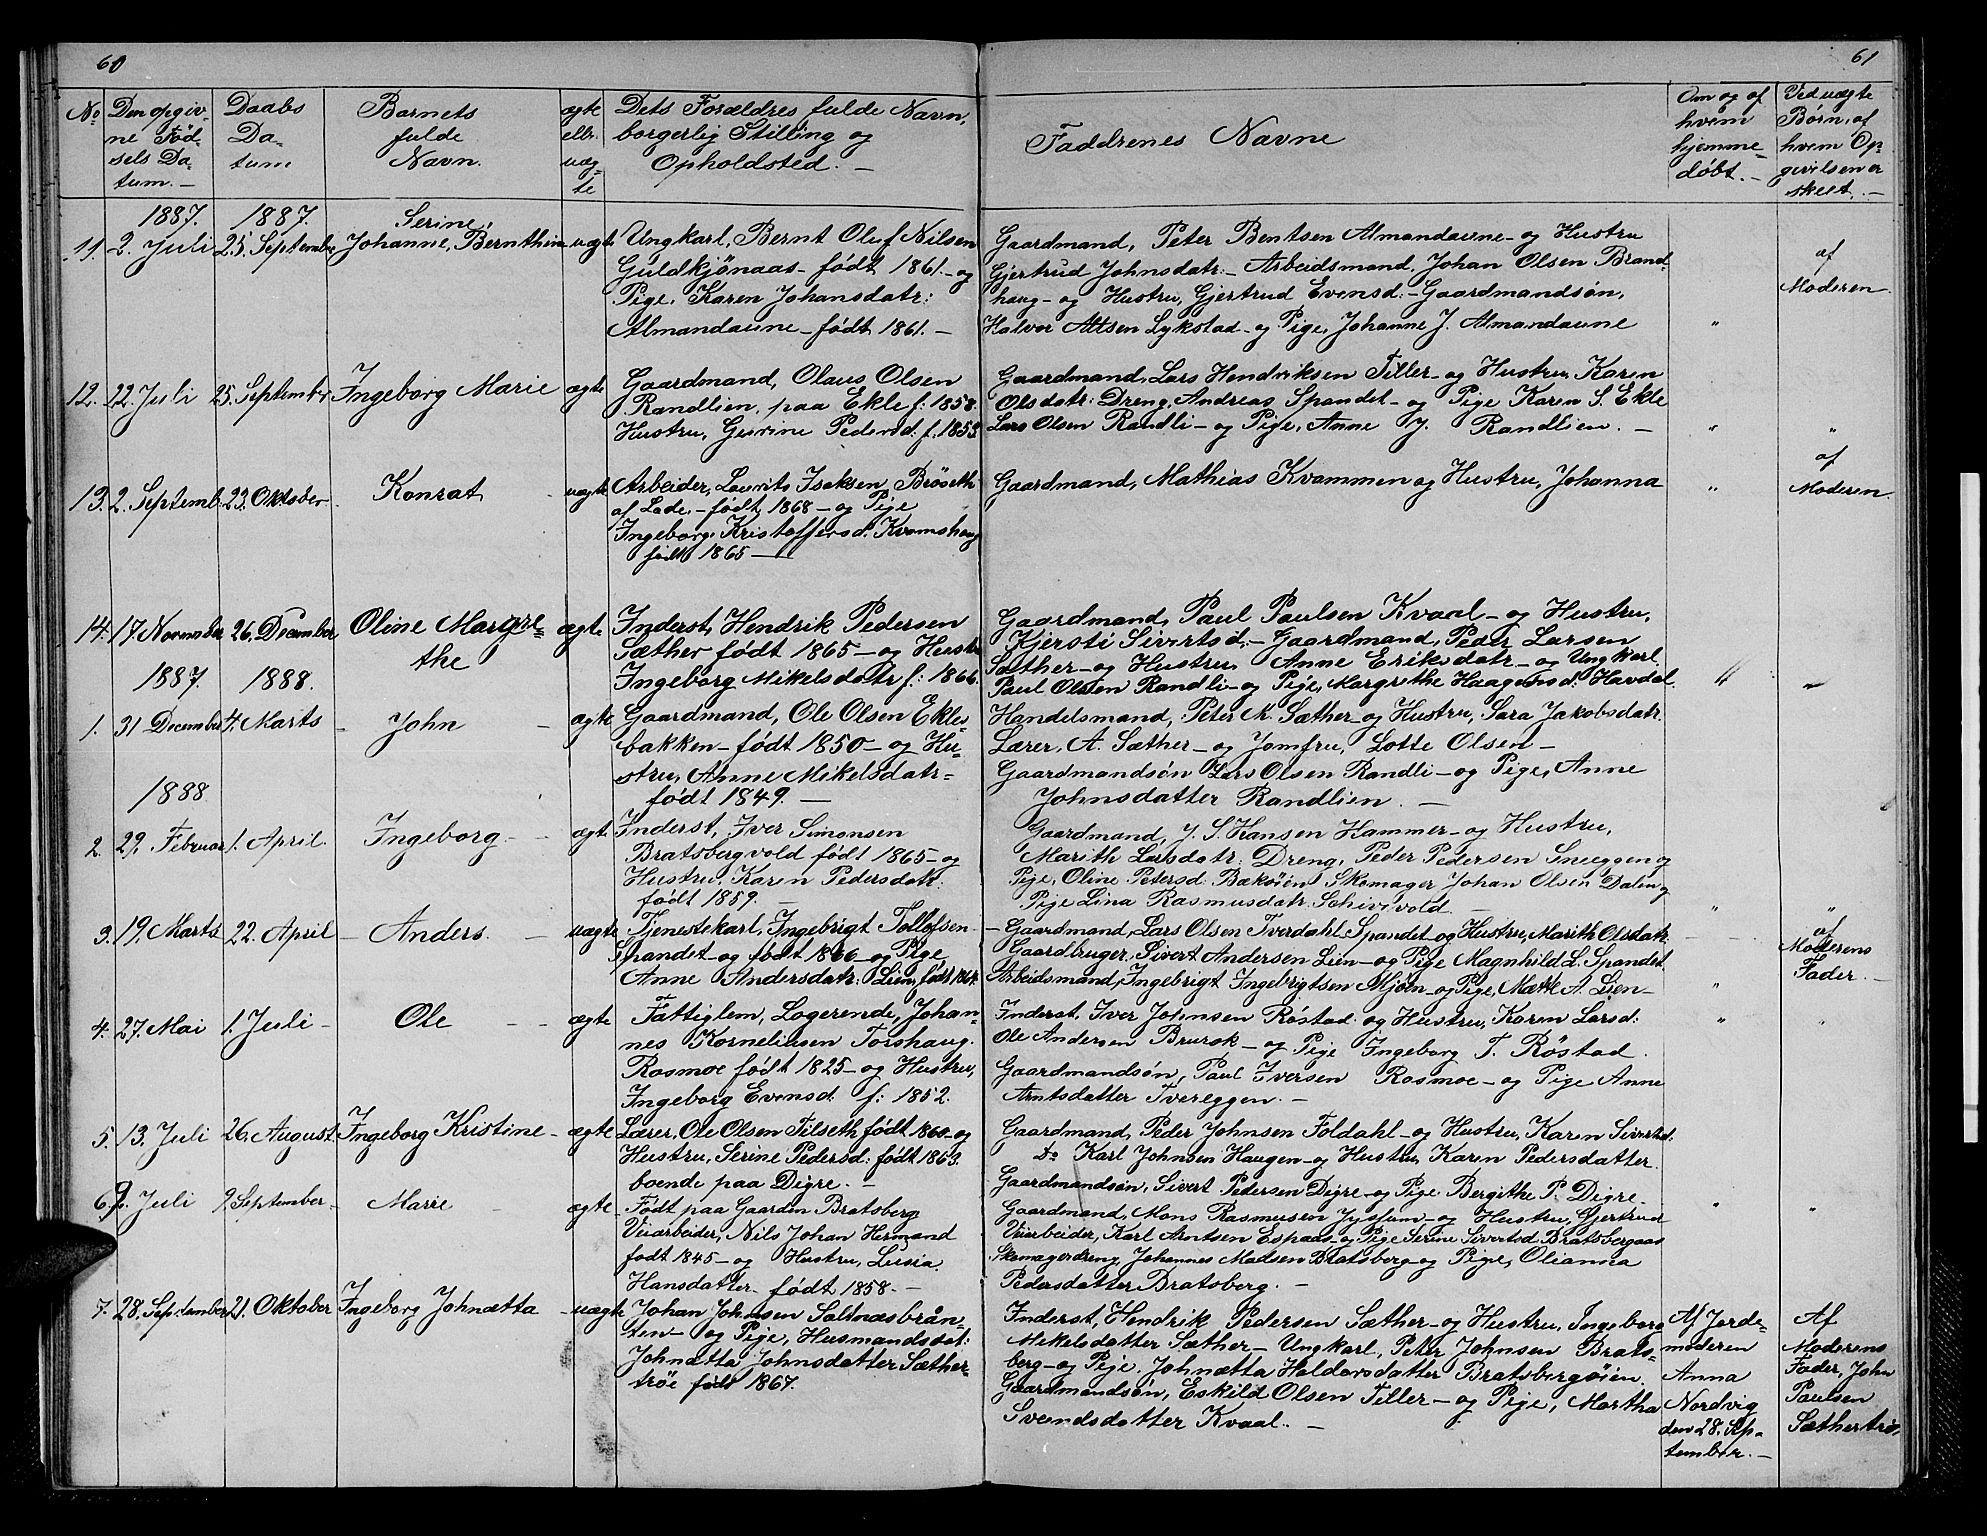 60
61
No
Den opgiv-
ne Fød-
sels Da-
tum.
Daabs
Da-
tum
Barnets
fulde
Navn.
ægte
ell.
uæg-
te
Dets Forældres fulde Navn,
borgerlig Stilling og
Opholdsted.
Faddrenes Navne
Om og af
hvem
hjemme-
døbt.
Ved uægte
Børn, af
hvem Op-
givelsen er
skeet.
1887. 1887.
11. 2. Juli 25. September
Serine,
Johanne, Bernthine
uægte
Ungkarl, Bernt Oluf Nilsen
Guldkjønaas - født 1861 - og
Pige, Karen Johansdatr:
Almandaune - født 1861. -
Gaardmand, Peter Bentsen Almandaune - og Hustru
Gjertrud Johnsdatr: - Arbeidsmand, Johan Olsen Brand-
haug - og Hustru, Gjertrud Evensd: - Gaardmandsøn,
Halvor Altsen Lykstad - og Pige, Johanne J. Almandaune
"
af
Moderen.
12. 22. Juli 25. September Ingeborg Marie ægte
Gaardmand, Olaus Olsen
Randlien, paa Ekle f: 1858.
Hustru, Gurine Pedersd. f. 1853.
Gaardmand, Lars Hendriksen Tiller - og Hustru, Karen
Olsdatr: Dreng, Andreas Spandet - og Pige Karen S. Ekle
Lars Olsen Randli - og Pige, Anne J. Randlien. -
" "
13. 2. Septemb. 23. Oktober Konrat uægte
Arbeider, Laurits Isaksen Brøseth
af Lade, - født 1868 - og Pige
Ingeborg Kristoffersd. Kvamshaug
født 1865
Gaardmand, Mathias Kvammen og Hustru, Johanna
"
af
Moderen.
14. 17 November 26. December Oline Margre-
the
ægte
Inderst, Hendrik Pedersen
Sæther født 1865 - og Hustru
Ingeborg Mikelsdatr f: 1866.
Gaardmand, Paul Paulsen Kvaal - og Hustru,
Kjersti Sivertsd. - Gaardmand, Peder Larsen
Sæther - og Hustru Anne Eriksdatr - og Ungkarl
Paul Olsen Randli - og Pige, Margrethe Haagensd: Havdal.
" "
1887. 1888.
1. 31 December 4. Marts - John - ægte
Gaardmand, Ole Olsen Ekles-
bakken - født 1850 - og Hu-
stru, Anne Mikelsdatr =
født 1849. -
Handelsmand, Peter M. Sæther - og Hustru, Sara Jakobsdatr.
Lærer, A. Sæther - og Jomfru, Lotte Olsen -
Gaardmandsøn Lars Olsen Randli - og Pige, Anne
Johnsdatter Randlien. -
1888
2. 29. Februar 1. April Ingeborg - ægte
Inderst, Iver Simonsen
Bratsbergvold født 1865 - og
Hustru, Karen Pedersdatr:
født 1859. -
Gaardmand, J. S. Hansen Hammer - og Hustru,
Marith Larsdatr: Dreng, Peder Pedersen Sneeggen og
Pige, Oline Petersd: Bækøien Skomager Johan Olsen Dalen og
Pige Lina Rasmusdatr.
" "
3. 19. Marts 22. April - Anders. - uægte
Tjenestekarl, Ingebrigt Tollofsen
Spandet - og født 1866 - og Pige
Anne Andersdatr: Lien, født 1864.
- Gaardmand, Lars Olsen Tverdahl Spandet - og Hustru, Marith Olsdatr.
Gaardbruger, Sivert Andersen Lien - og Pige Magnhild L. Spandet
Arbeidsmand, Ingebrigt Ingebrigtsen Mjøen - og Pige, Mætte A. Lien -
"
af
Moderens
Fader. -
4. 27. Mai 1. Juli - Ole - - ægte
Fattiglem, Logerende, Johan-
nes Korneliusen Torshaug.
Rosmoe født 1825 - og Hustru,
Ingeborg Evensd. f: 1852.
Inderst, Iver Johnsen Røstad og Hustru, Karen Larsd:
Ole Andersen Brurok - og Pige Ingeborg T. Røstad.
Gaardmandsøn, Paul Iversen Rosmoe - og Pige Anne
Arntsdatter Tvereggen. -
" "
5. 13. Juli 26. August Ingeborg Kristine - ægte
Lærer, Ole Olsen Tilseth født 1860 - og
Hustru, Serine Pedersd: født 1863.
boende paa Digre. -
Gaardmand, Peder Johnsen Foldahl - og Hustru, Karen Sivertsd.
Do Karl Johnsen Haugen - og Hustru Karen Pedersdatter.
Gaardmandsøn, Sivert Pedersen Digre - og Pige Bergithe P. Digre -
6. 9. Juli 9. September - Marie - ægte
Født paa Gaarden Bratsberg
Veiarbeider, Nils Johan Hermand
født 1845 - og Hustru, Lusia
Hansdatter født 1858 -
Gaardmand, Mons Rasmusen - og Hustru, Gjertrud
Veiarbeider, Karl Arntsen Espaas - og Pige Serine Sivertsd. Bratsbergaas
Skomagerdreng, Johannes Madsen Bratsberg - og Pige, Olianna
Pedersdatter Bratsberg. -
" "
7. 28. September 21. Oktober Ingeborg Johnætta - uægte
Johan Johnsen Saltnæsbrån-
ten - og Pige, Husmandsdat:
Johnætta Johnsdatter Sæther-
trøe født 1867.
Inderst, Hendrik Pedersen Sæther - og Hustru, Ingeborg
Mikelsdatter Sæther - Ungkarl, Peter Johnsen Brats-
berg - og Pige, Johnætta Haldorsdatter Bratsbergøien.
Gaardmandsøn, Eskild Olsen Tiller - og Pige, Martha
Svendsdatter Kvaal. -
Af Jorde-
moderen
Anna
Nordvig
den 28. Sep-
tember. -
Af
Moderens
Fader, John
Paulsen
Sæthertrø.